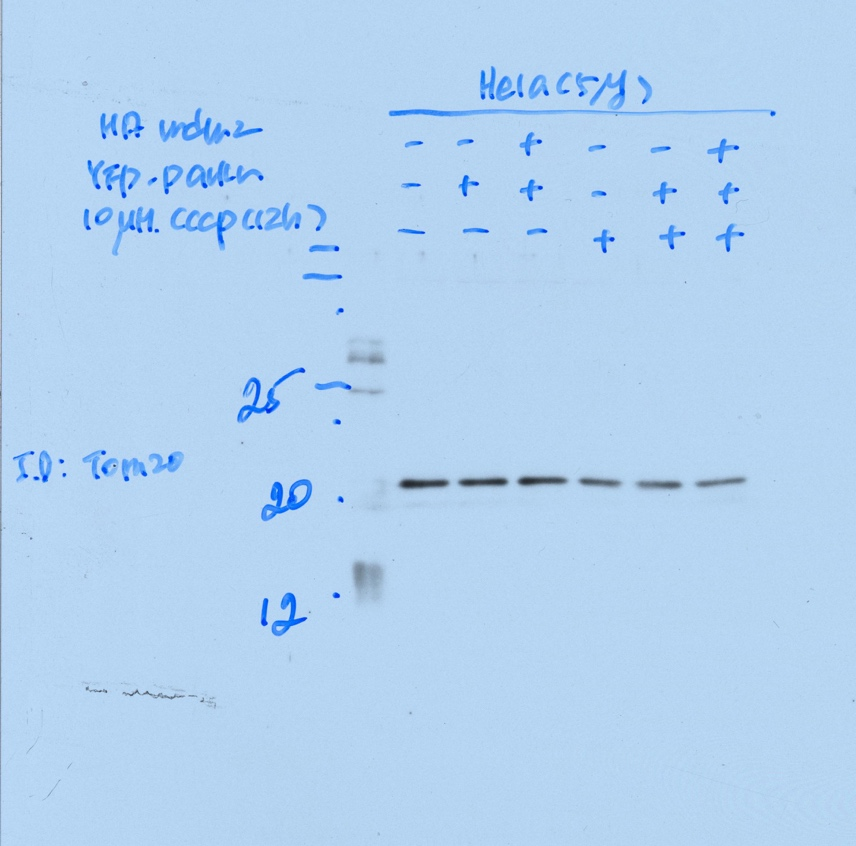 Hela (5μg)
HA mdm2 - - + - - +
YFP.parkin - + + - + +
10 μM. CCCP (12h) - - - + + +
25
I.D: Tom20
20
12